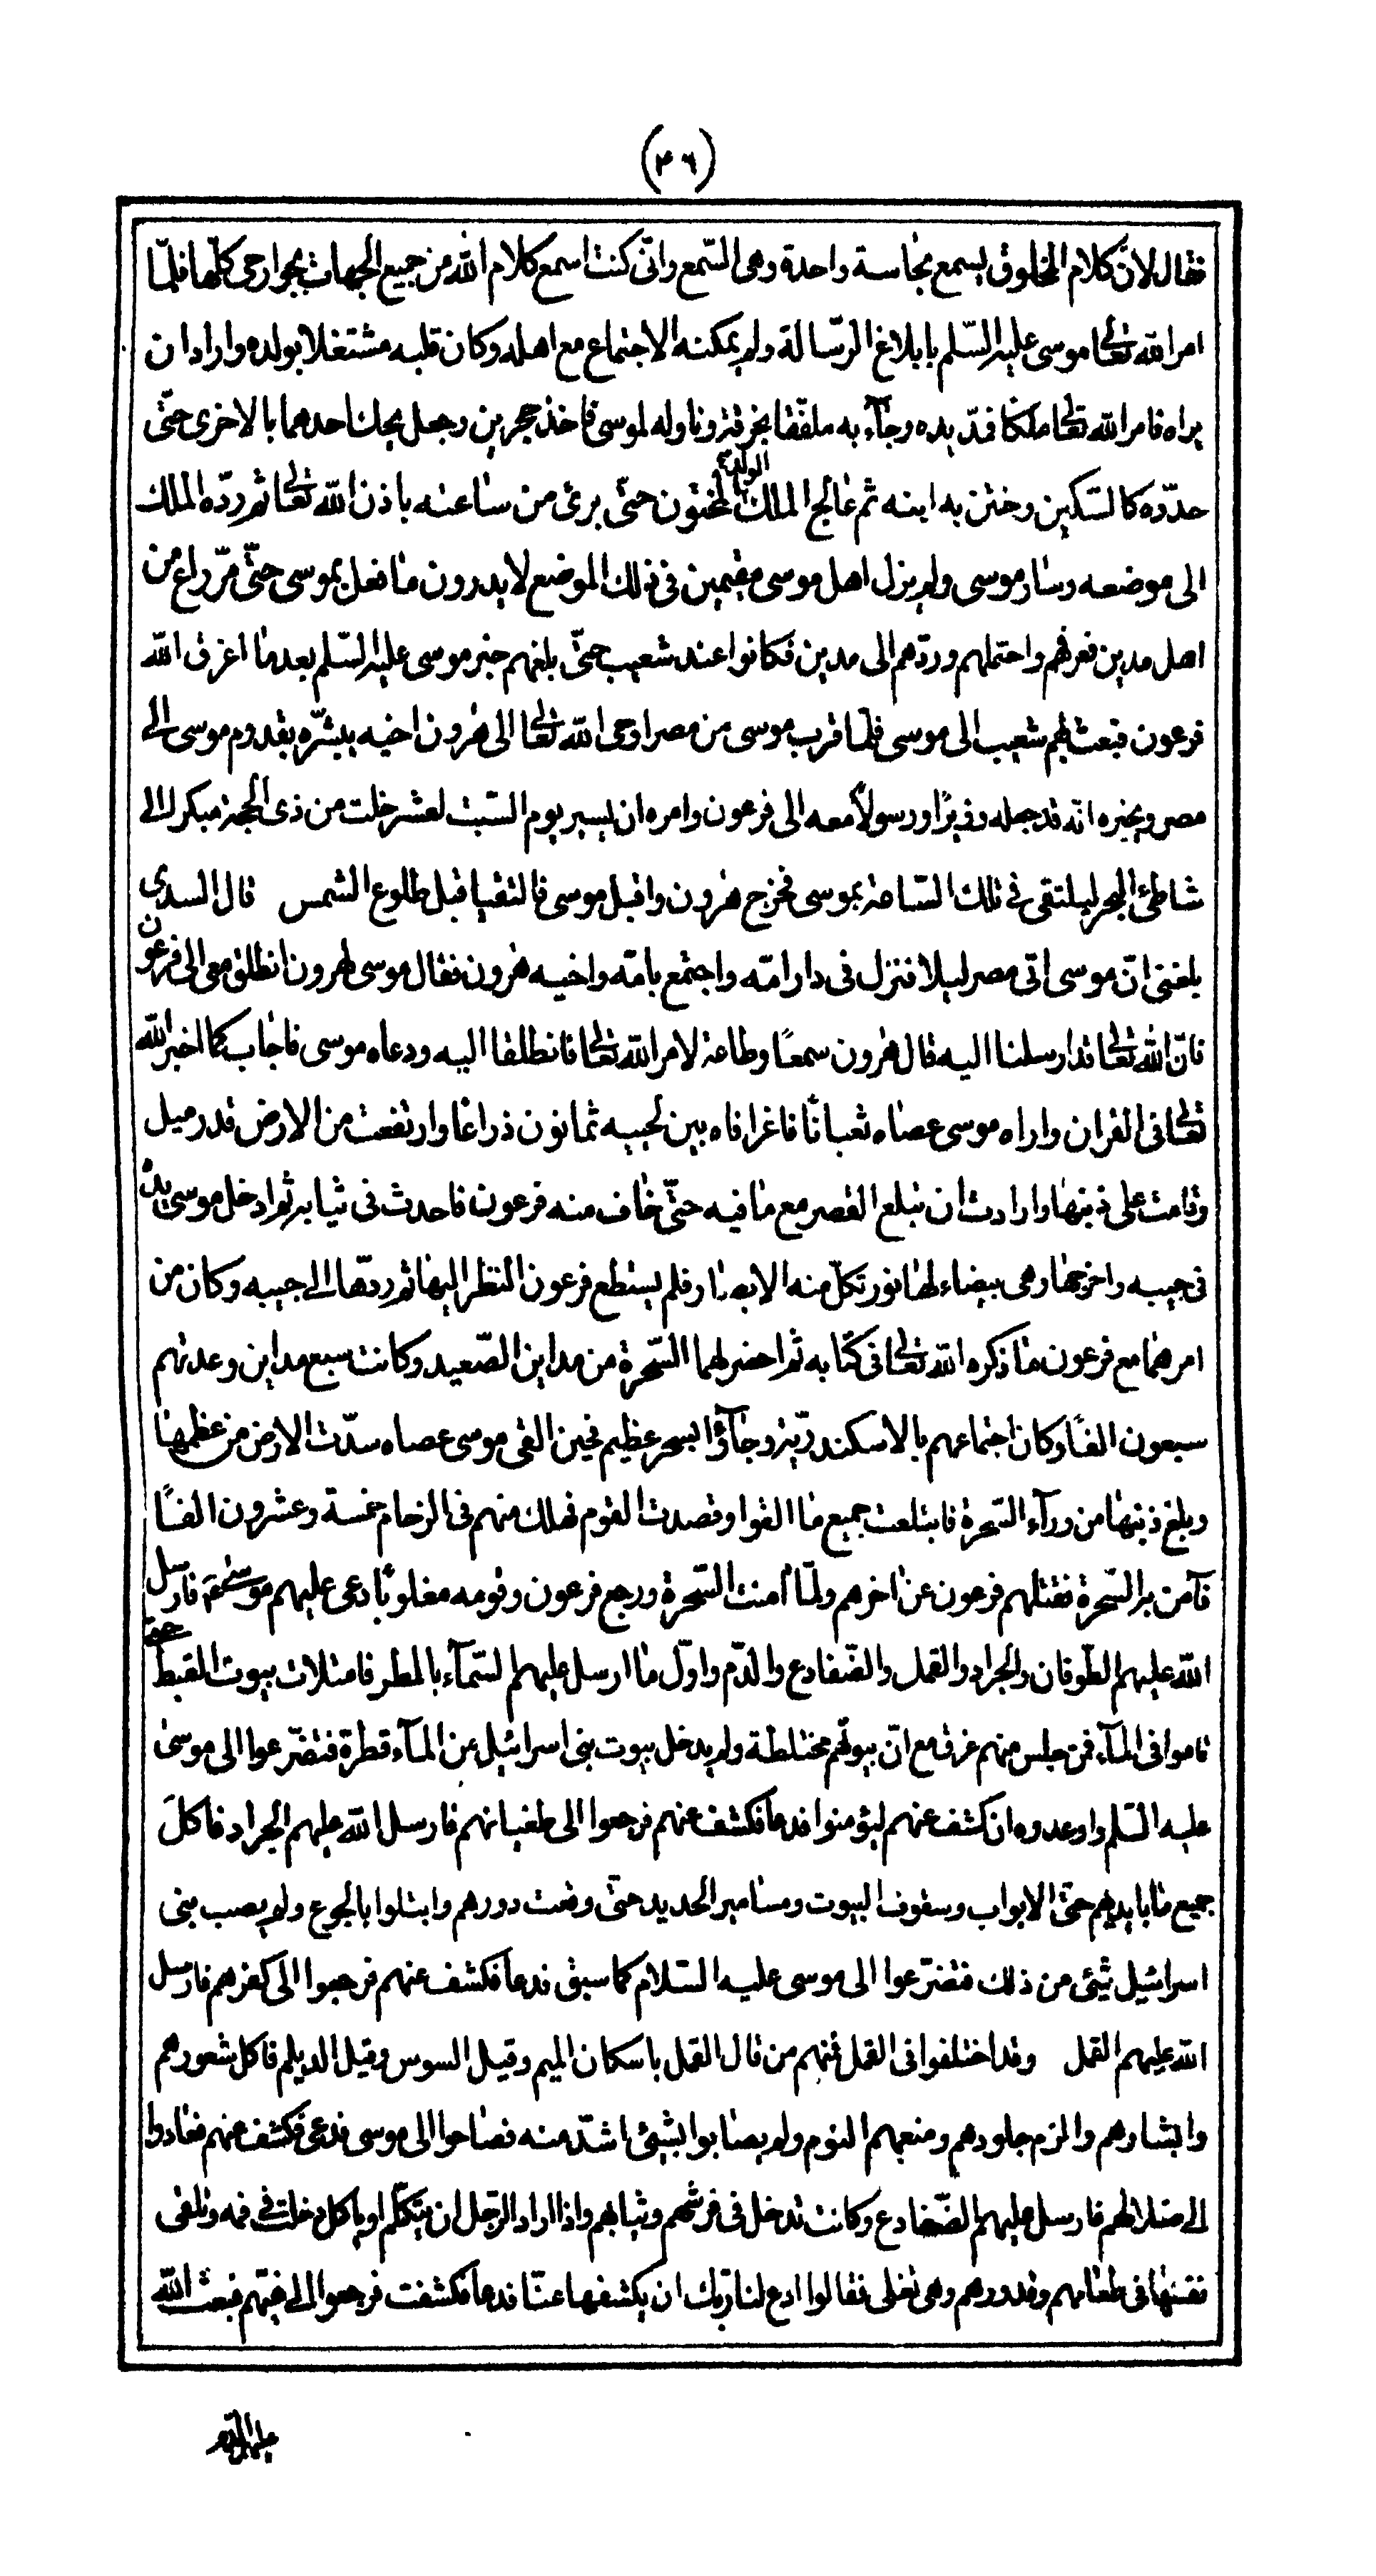 (٤٦)
فقال لان كلام المخلوق يسمع بحاسة واحدة وهى السّمع وانّى كنت اسمع كلام الله من جميع الجهات بجوارحى كلّها فلمّا
امر الله تعالى موسى عليه السّلم بابلاغ الرّسالة ولم يمكنه الاجتماع مع اهله وكان قلبه مشتغلا بولده واراد ان
يراه فامر الله تعالى ملكا فمدّ يده وجآء به ملفّفا بخرقة وناوله لموسى فاخذ حجرين وجعل يحك احدهما بالاخرى حتّى
حدّده كالسّكين وختن به ابنه ثم عالج الملك الولد المختون حتّى برئ من ساعته باذن الله تعالى ثم ردّه الملك
الى موضعه وسار موسى ولم يزل اهل موسى مقيمين فى ذلك الموضع لا يدرون ما فعل بموسى حتّى مرّ راع من
اهل مدين فعرفهم واحتملهم وردّهم الى مدين فكانوا عند شعيب حتّى بلغهم خبر موسى عليه السّلم بعدما اغرق الله
فرعون فبعث بهم شعيب الى موسى فلمّا قرب موسى من مصر اوحى الله تعالى الى هرون اخيه يبشّره بقدوم موسى الى
مصر ويخبره انه قد جعله وزيرًا ورسولاً معه الى فرعون وامره ان يسير يوم السّبت لعشر خلت من ذى الحجة مبكرا الى
شاطئ البحر ليلتقى فى تلك السّاعة بموسى فخرج هرون واقبل موسى فالتقيا قبل طلوع الشمس قال السدى
بلغنى انّ موسى اتى مصر ليلا فنزل فى دار امّه واجتمع بامّه واخيه هرون فقال موسى لهرون انطلق معى الى فرعون
فانّ الله تعالى قد ارسلنا اليه قال هرون سمعًا وطاعة لامر الله تعالى فانطلقا اليه ودعاه موسى فاجاب كما اخبر الله
تعالى فى القران واراه موسى عصاه ثعبانًا فاغرا فاه بين لحييه ثمانون ذراعًا وارتفعت من الارض قدر ميل
وقامت على ذنبها وارادت ان تبلع القصر مع ما فيه حتّى خاف منه فرعون فاحدث فى ثيابه ثم ادخل موسى يده
فى جيبه واخرجها وهى بيضاء لها نور تكلّ منه الابصار فلم يستطع فرعون النظر اليها ثم ردّها الى جيبه وكان من
امرهما مع فرعون ما ذكره الله تعالى فى كتابه ثم احضر لهما السّحرة من مداين الصّعيد وكانت سبع مداين وعدتهم
سبعون الفًا وكان اجتماعهم بالاسكندريّة وجاؤا بسحر عظيم فحين القى موسى عصاه سدّت الارض من عظمها
وبلغ ذنبها من ورآء السّحرة فابتلعت جميع ما القوا وقصدت القوم فهلك منهم فى الزحام خمسة وعشرون الفًا
فآمن به السّحرة فقتلهم فرعون عن اخرهم ولمّا امنت السّحرة ورجع فرعون وقومه مغلوبًا دعى عليهم موسى عم فارسل
الله عليهم الطّوفان والجراد والقمل والضّفادع والدّم واوّل ما ارسل عليهم السّمآء بالمطر فامتلات بيوت القبط حتى
قاموا فى المآء فمن جلس منهم غرق مع انّ بيوتهم مختلطة ولم يدخل بيوت بنى اسرائيل من المآء قطرة فتضرّعوا الى موسى
عليه السّلم واوعدوه ان كشف عنهم ليؤمنوا فدعا فكشف عنهم فرجعوا الى طغيانهم فارسل الله عليهم الجراد فاكل
جميع ما بايديهم حتّى الابواب وسقوف البيوت ومسامير الحديد حتّى وقعت دورهم وابتلوا بالجوع ولم يصب بنى
اسرائيل شئ من ذلك فتضرّعوا الى موسى عليه السّلام كما سبق فدعا فكشف عنهم فرجعوا الى كفرهم فارسل
الله عليهم القمل وقد اختلفوا فى القمل فمنهم من قال القمل باسكان الميم وقيل السوس وقيل الديلم فاكل شعورهم
وابشارهم والزم جلودهم ومنعهم النوم ولم يصابوا بشيئ اشدّ منه فصاحوا الى موسى فدعى فكشف عنهم فعادوا
الى ضلالهم فارسل عليهم الضّفادع وكانت تدخل فى فرشهم وثيابهم واذا اراد الرّجل ان يتكلّم او ياكل دخلت فى فمه وتلقى
نفسها فى طعامهم وقدورهم وهى تغلى فقالوا ادع لنا ربّك ان يكشفها عنّا فدعا فكشفت فرجعوا الى غيّهم فبعث الله
عليهم الدّم